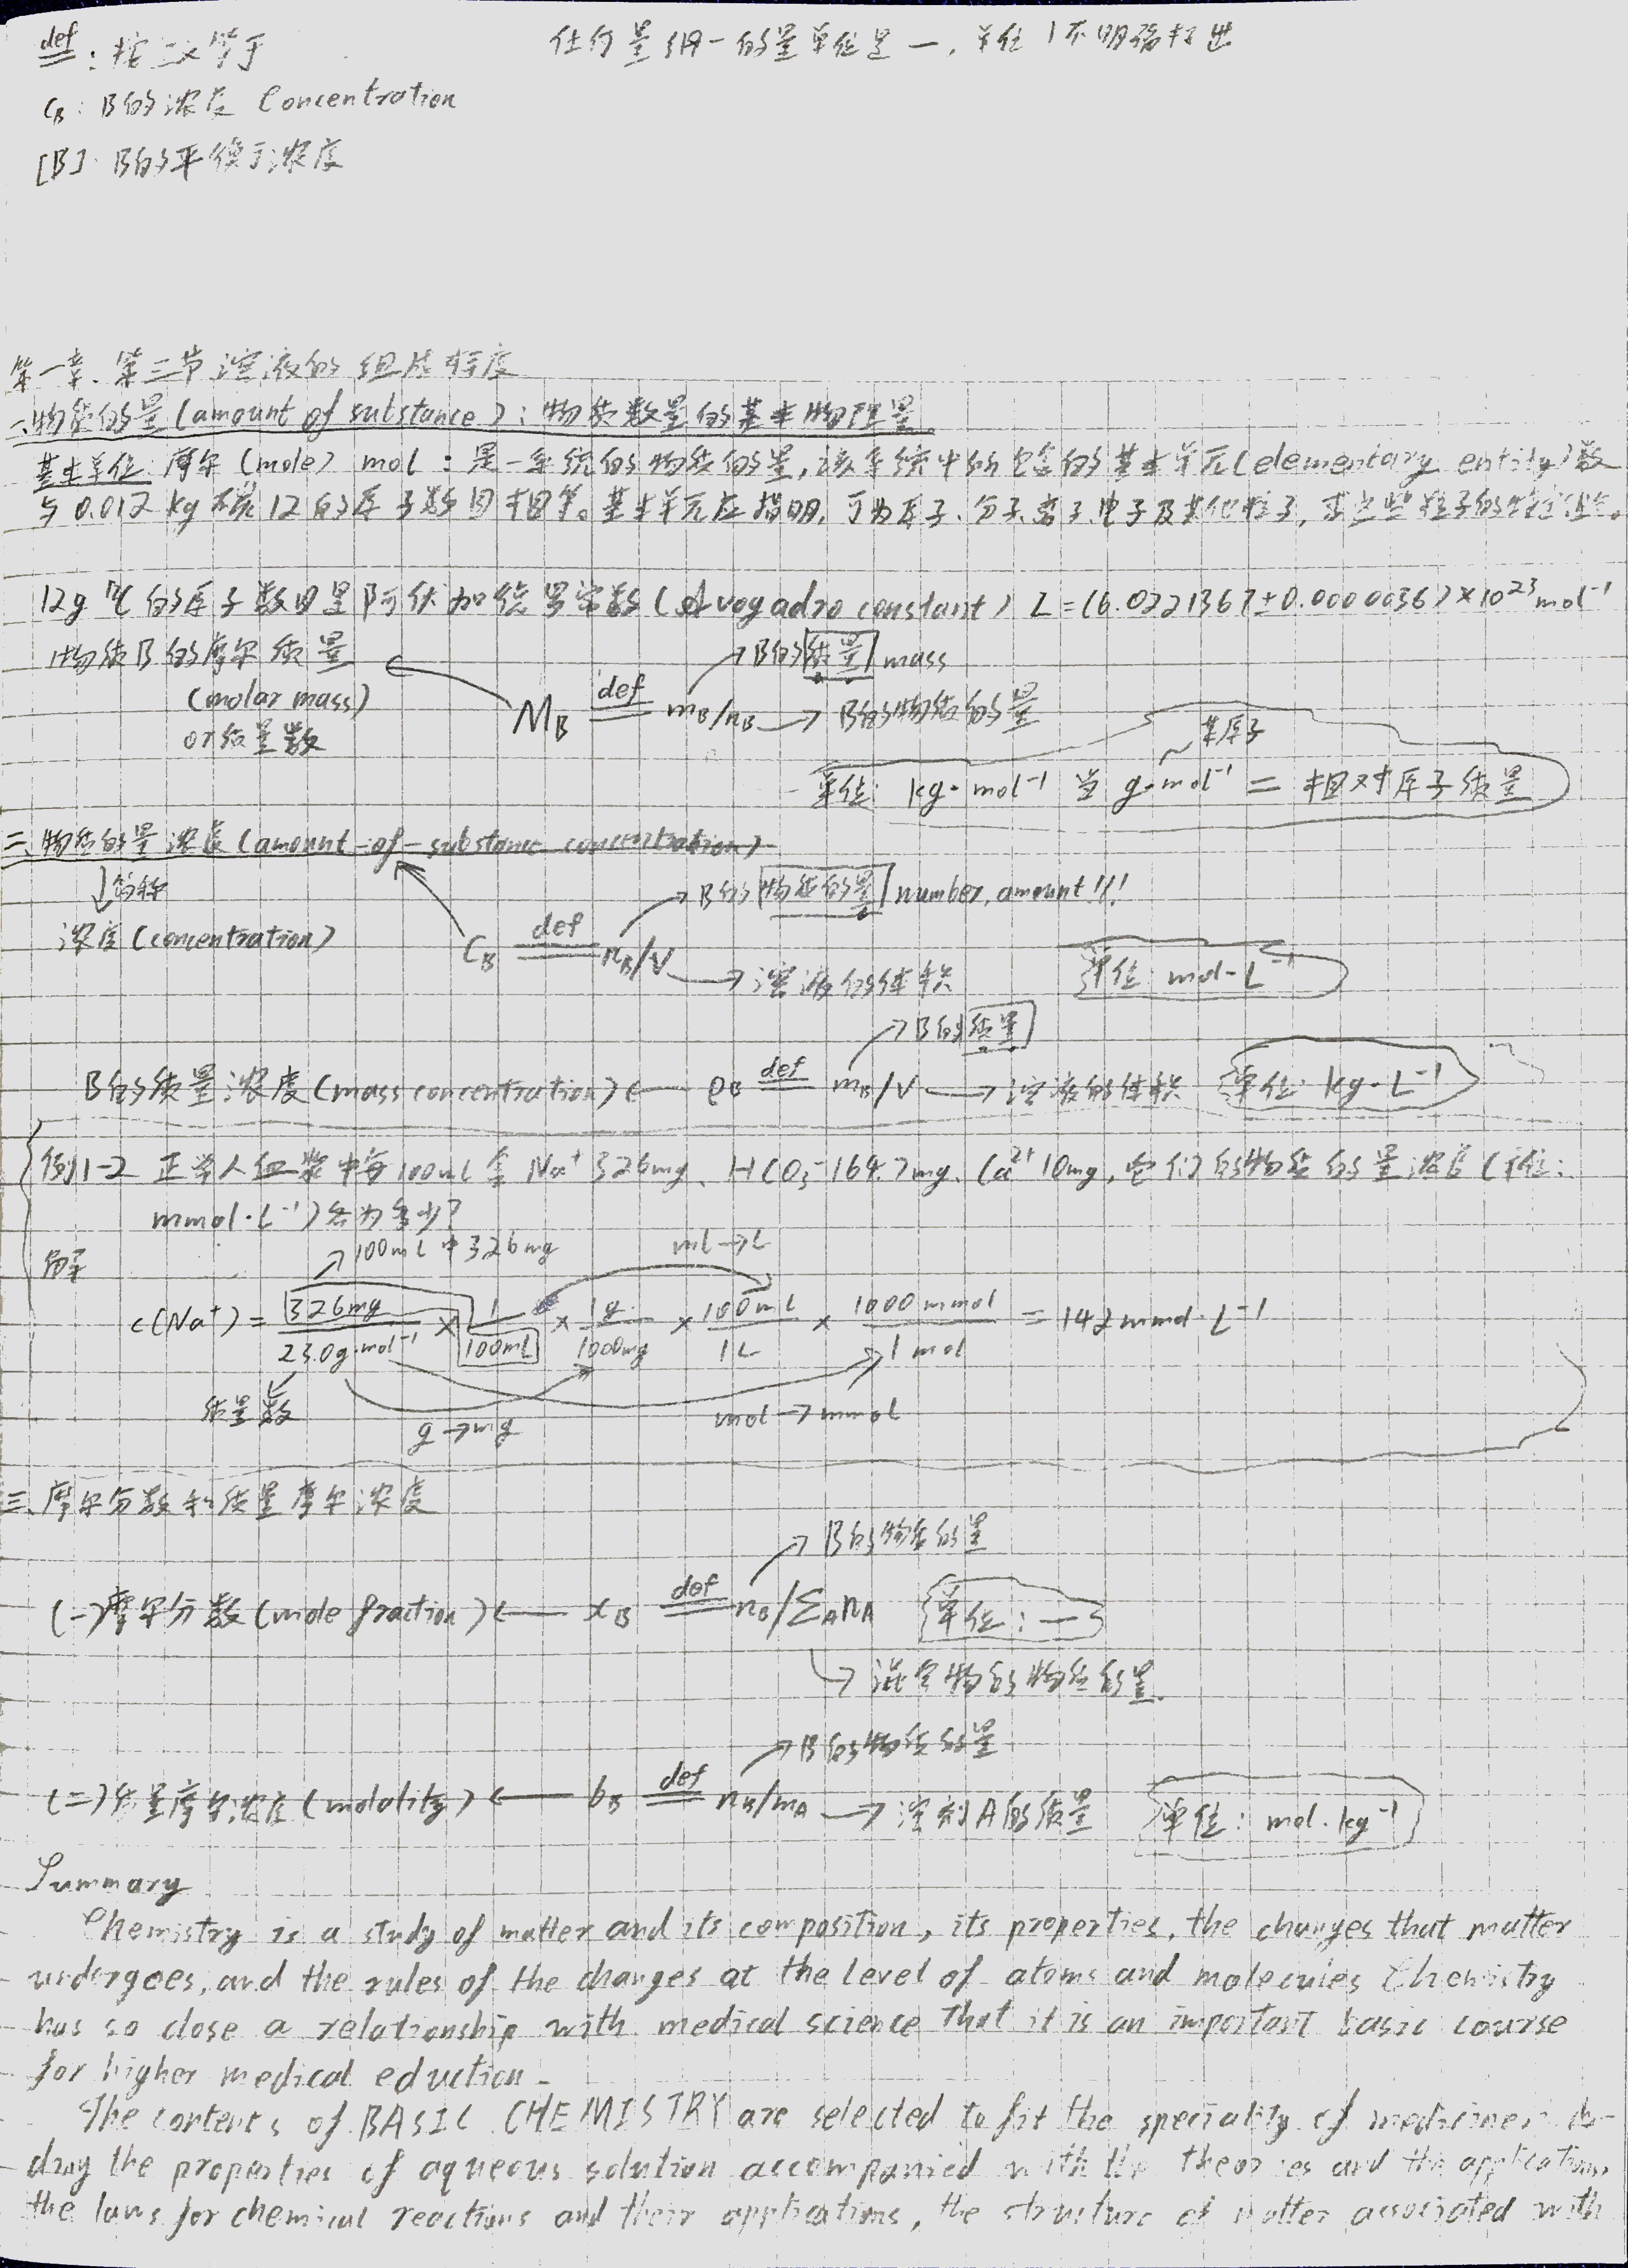 def : 按定义等于
任何量纲一的量单位是一，单位1不明确写出
cB: B的浓度 Concentration
[B]: B的平衡浓度
第一章、第三节 溶液的组成标度
一、物质的量(amount of substance)：物质数量的基本物理量。
基本单位：摩尔(mole) mol：是一系统的物质的量，该系统中所包含的基本单元(elementary entity)数
与0.012kg碳12的原子数目相等。基本单元应指明，可为原子、分子、离子、电子及其他粒子，或这些粒子的特定组合。
12g ¹²C的原子数目是阿伏加德罗常数(Avogadro constant) L=(6.0221367±0.0000036)×10²³mol⁻¹
B的质量 mass
物质B的摩尔质量
(molar mass)
or质量数
MB def mB/nB → B的物质的量
某原子
单位: kg·mol⁻¹ 当 g·mol⁻¹ = 相对原子质量
二、物质的量浓度(amount-of-substance concentration)
↓简称
B的物质的量 number, amount!!!
浓度(concentration)
CB def nB/V → 溶液的体积
单位 mol·L⁻¹
B的质量
B的质量浓度(mass concentration) ← ρB def mB/V → 溶液的体积 单位: kg·L⁻¹
例1-2 正常人血浆中每100mL含Na⁺ 326mg、HCO₃⁻ 164.7mg、Ca²⁺ 10mg，它们的物质的量浓度(单位:
mmol·L⁻¹)各为多少?
解
100mL中326mg
mL→L
c(Na⁺) = 326mg/23.0g·mol⁻¹ × 1/100mL × 1g/1000mg × 100mL/1L × 1000mmol/1mol = 142mmol·L⁻¹
质量数
g→mg
mol→mmol
三、摩尔分数和质量摩尔浓度
B的物质的量
(一)摩尔分数(mole fraction) ← xB def nB/ΣAnA 单位: 一
混合物的物质的量
B的物质的量
(二)质量摩尔浓度(molality) ← bB def nB/mA → 溶剂A的质量 单位: mol·kg⁻¹
Summary
Chemistry is a study of matter and its composition, its properties, the changes that matter
undergoes, and the rules of the changes at the level of atoms and molecules Chemistry
has so close a relationship with medical science that it is an important basic course
for higher medical eduction.
The contents of BASIC CHEMISTRY are selected to fit the speciality of medicine
the properties of aqueous solution accompanied with the theories and the applications
the laws for chemical reactions and their applications, the structure of matter associated with